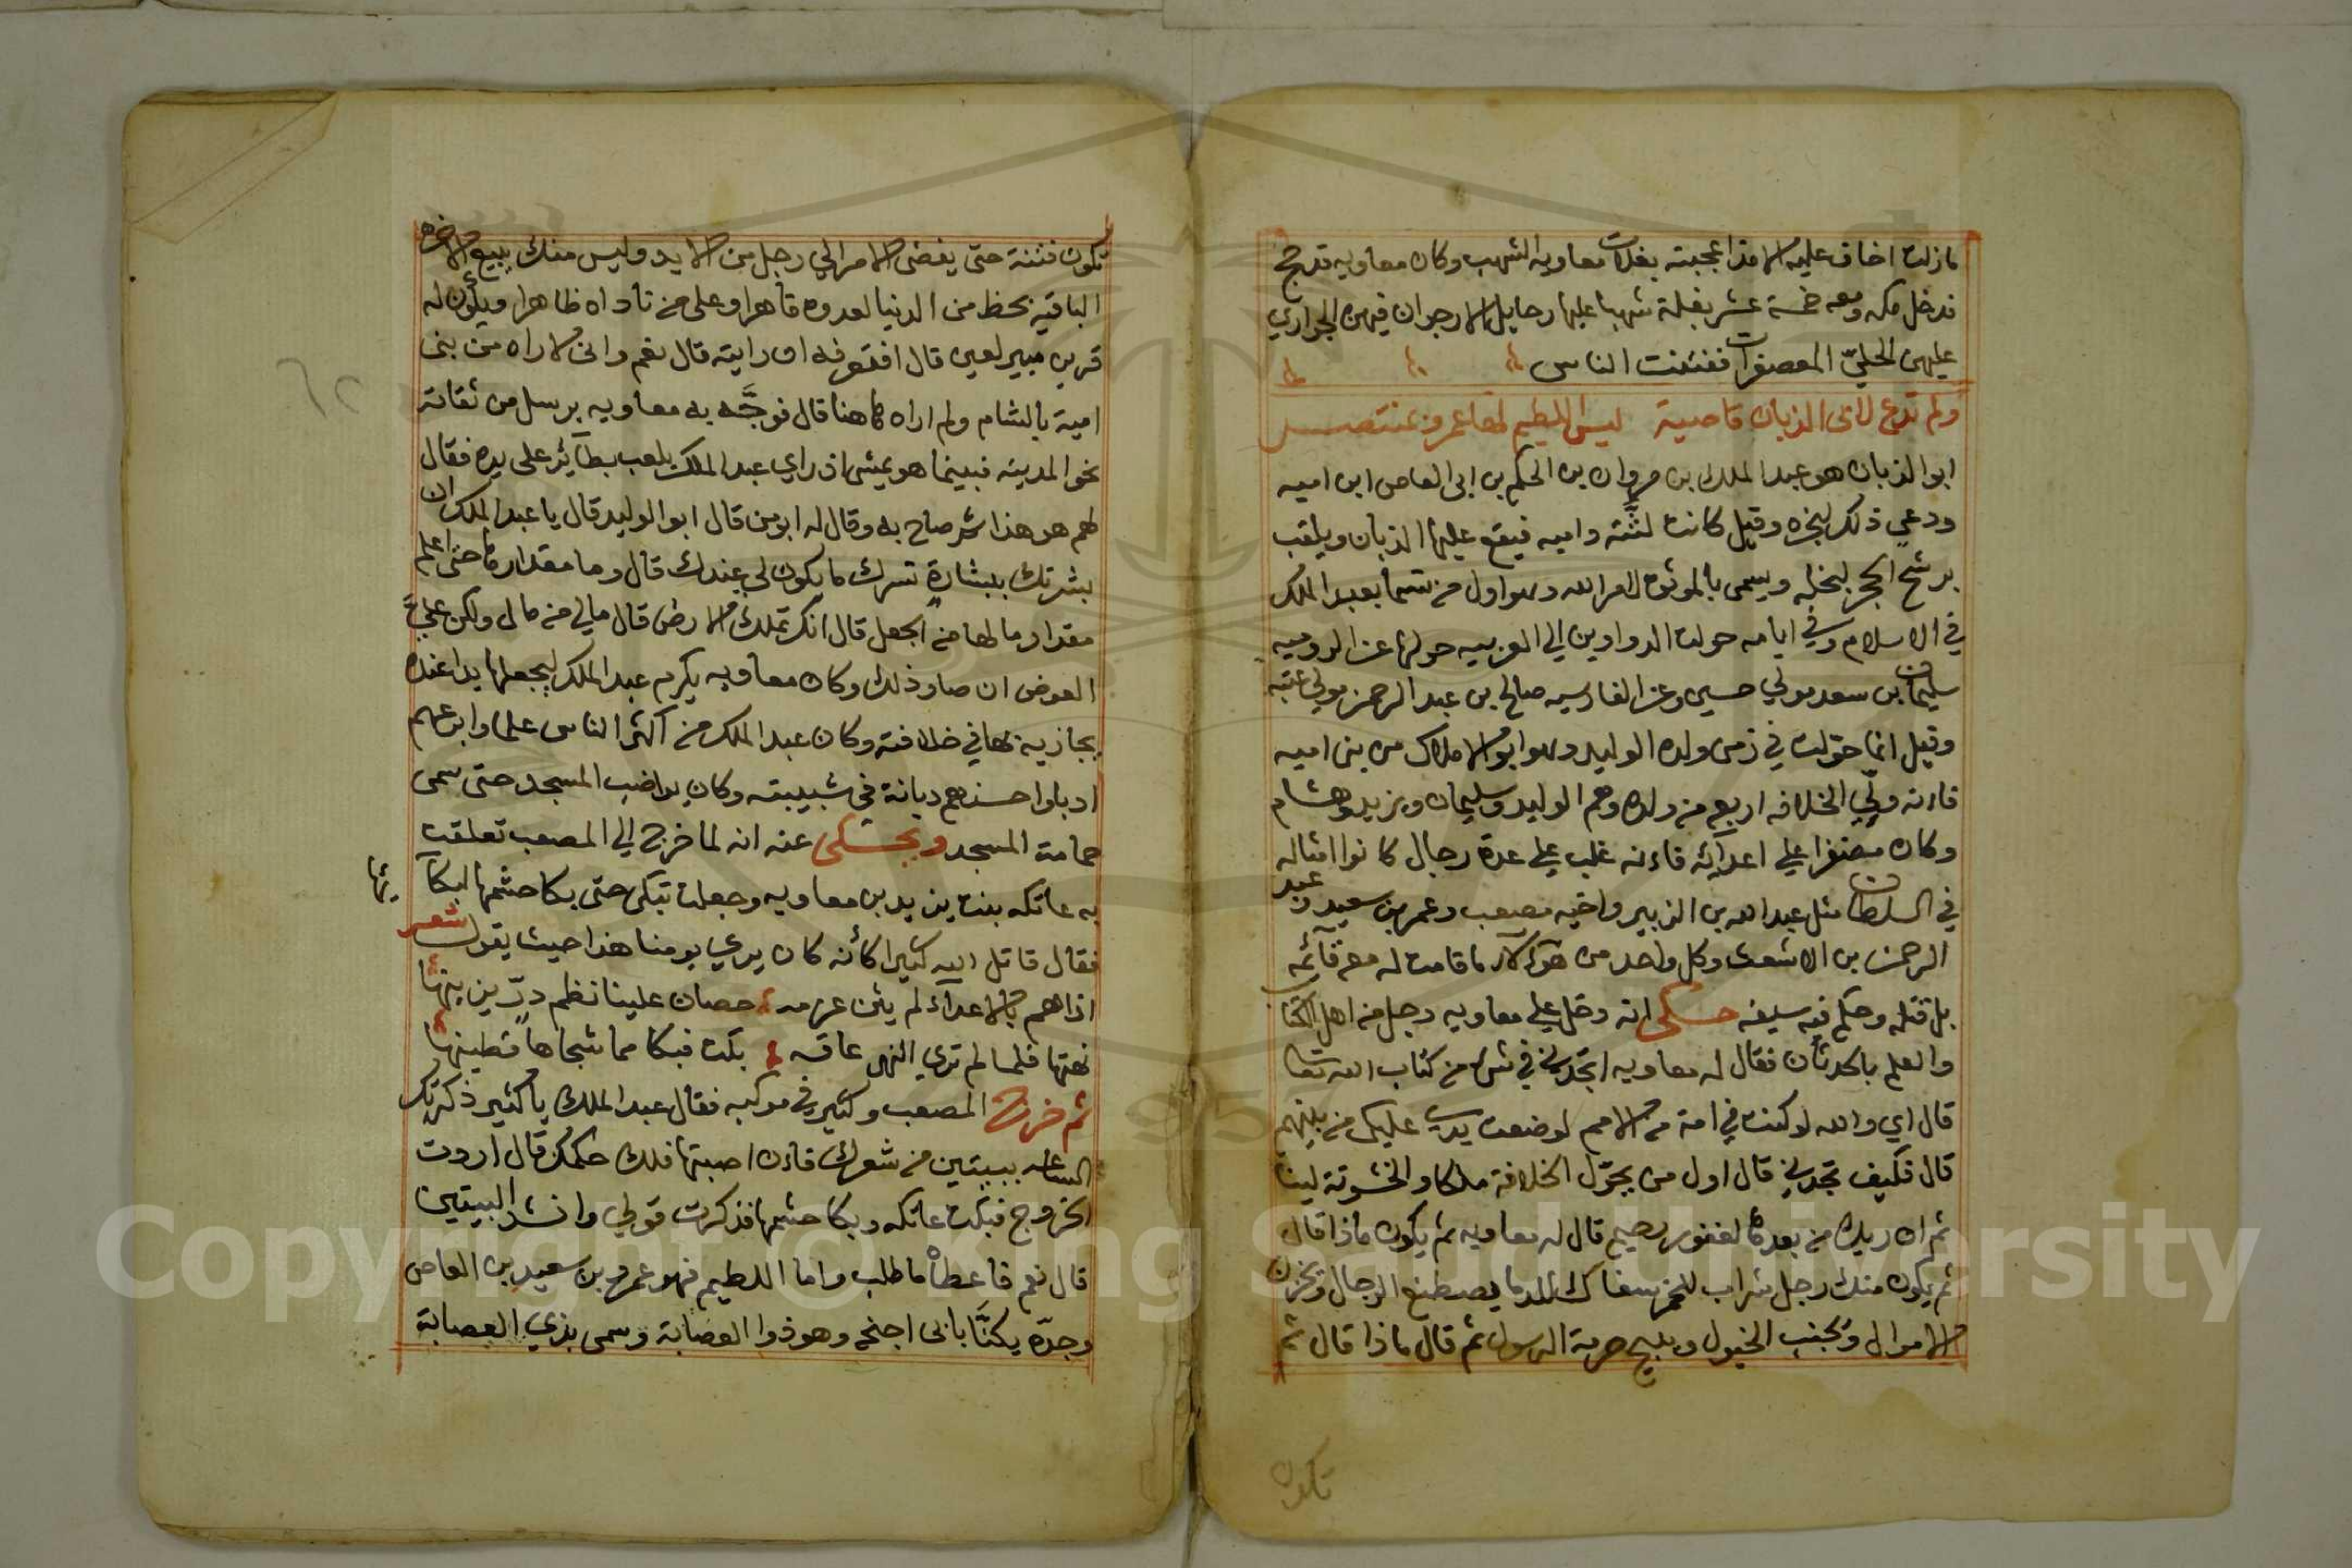 ما زلت اخاف عليه مذ اعجبته بغلات معاويه الشهب وكان معاويه قد حج
فدخل مكه ومعه خمسة عشر بغلة شهبا عليها رحايل الارجوان فيهن الجواري
عليهن الحليّ المعصفرات ففتنت الناس
ولم تدع لابى الذبان قاصية ليس اللطيم لها عمرو بمنتصر
ابو الذبان هو عبد الملك بن مروان بن الحكم بن ابى العاص ابن اميه
ودعي ذلك لبخره وقيل كانت لثته داميه فيقع عليها الذبان ويلقب
برشح الحجر لبخله ويسمى بالموثق لامر الله وهو اول من تسما بعبد الملك
في الاسلام وفي ايامه حولت الدواوين الي العربيه حولها عن الروميه
سليمان بن سعد مولي حسين وعن الفارسيه صالح بن عبد الرحمن مولي عتبه
وقيل انما حوّلت في زمن ولده الوليد وهو ابو الاملاك من بنى اميه
فانه ولّي الخلافه اربع من ولده وهم الوليد وسليمان ويزيد وهشام
وكان مضفرا علي اعدآئه فانه غلب علي عدة رجال كانوا امثاله
في السلطان مثل عبد الله بن الزبير واخيه مصعب وعمر بن سعيد وعبد
الرحمن بن الاشعث وكل واحد من هؤلآء ما قامت له معه قآئمه
بل قتله وحكم فيه سيفه حكى انه دخل علي معاويه رجل من اهل الكتاب
والعلم بالحدثان فقال له معاويه اتجدني في شى من كتاب الله تعا
قال اي والله لو كنت في امة من الامم لوضعت يدي عليك من بينهم
قال فكيف تجدني قال اول من يحوّل الخلافة ملكا والخشونة لينا
ثم ان ربك من بعدها لغفور رحيم قال له معاويه ثم يكون ماذا قال
ثم يكون منك رجل شراب للخمر سفاك للدما يصطنع الرجال ويخزن
الاموال ويجنب الخيول ويبيح حرمة الرسول ثم قال ماذا قال ثم
تكون
تكون فتنة حتى يفضى الامر الي رجل من الايد وليس منك يبيع الاخره
الباقيه بحظ من الدنيا لعدوه قاهرا وعلى من ناواه ظاهرا ويكون له
قرين مبير لعين قال افتعرفه ان رايته قال نعم وانى لاراه من بنى
امية بالشام ولم اراه هاهنا قال فوجَّه به معاويه برسل من ثقاته
نحو المدينه فبينما هو يمشى اذ راي عبد الملك يلعب بطآئر على يده فقال
لهم هو هذا ثم صاح به وقال له ابو من قال ابو الوليد قال يا عبد الملك ان
بشرتك ببشارة تسرك ما يكون لي عندك قال وما مقدارها حتى اعلم
مقدار ما لها من الجعل قال انك تملك الارض قال مالي من مال ولكن عليّ
العوض ان صار ذلك وكان معاويه يكرم عبد الملك ليجعلها يدا عنده
يجازيه بها في خلافته وكان عبد الملك من اكثر الناس علما وابرعهم
ادبا واحسنهم ديانة في شبيبته وكان يواضب المسجد حتى سمى
حمامة المسجد ويحكى عنه انه لما خرج الي المصعب تعلقت
به عاتكه بنت يزيد بن معاويه وجعلت تبكى حتى بكا حشمها لبكآ
ئها
فقال قاتل الله كثيرا كأنه كان يري يومنا هذا حيث يقول شعر
اذا هم بالاعدآء لم يثن عزمه حصان علينا نظم درّ يزينها
نهتها فلما لم تري النهى عاقه بكت فبكا مما شجاها قطينها
ثم خرج المصعب وكثير في موكبه فقال عبد الملك يا كثير ذكرتك
الساعه ببيتين من شعرك فان اصبتها فلك حكمك قال اردت
الخروج فبكت عاتكه وبكا حشمها فذكرت قولي وانشد البيتين
قال نعم فاعطاه ما طلب واما اللطيم فهو عمرو بن سعيد بن العاص
وجدّه يكنَّا بابى اجنحه وهو ذوا العصابة وسمى بذي العصابة